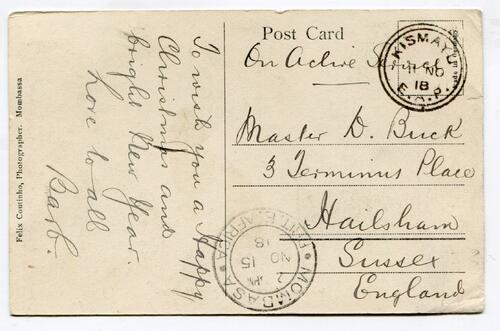 Post Card
On Active Service
KISMAYU
11 NO
18
E.A.P.
To wish you a Happy
Christmas and
bright New Year.
Love to all
Barb.
Felix Coutinho, Photographer. Mombassa
Master D. Buck
3 Terminus Place
Hailsham
Sussex
England
MOMBASA
BRIT. E. AFRICA
2 PM
NO 15
18